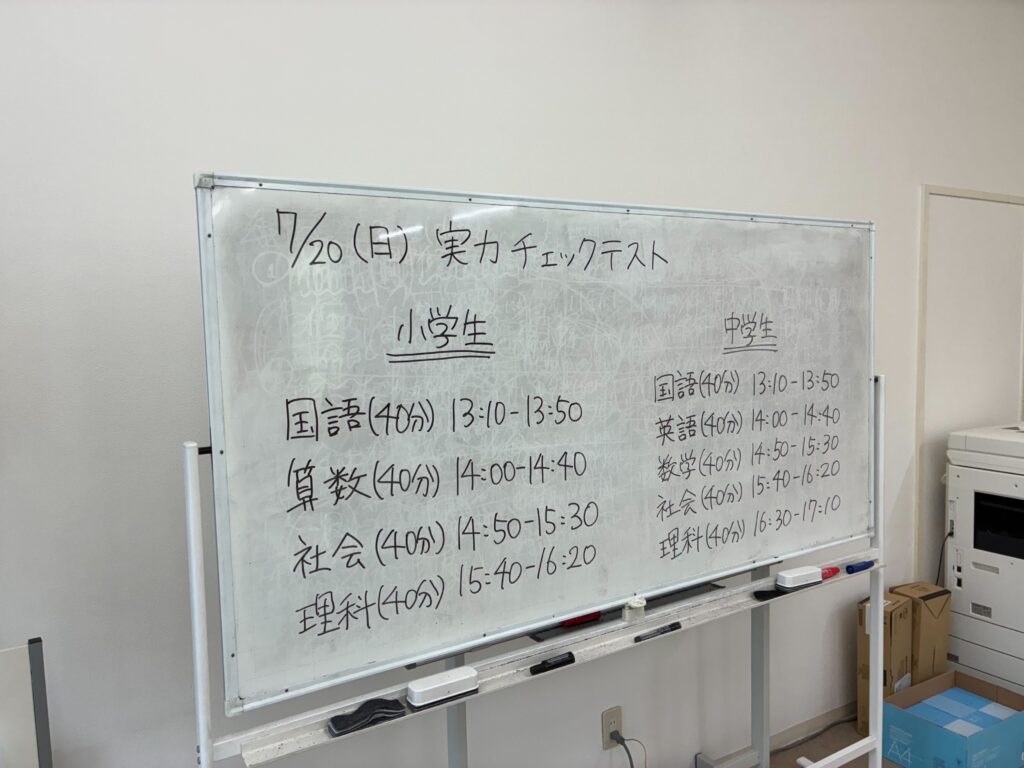 7/20(日) 実力チェックテスト
小学生
国語(40分) 13:10-13:50
算数(40分) 14:00-14:40
社会(40分) 14:50-15:30
理科(40分) 15:40-16:20
中学生
国語(40分) 13:10-13:50
英語(40分) 14:00-14:40
数学(40分) 14:50-15:30
社会(40分) 15:40-16:20
理科(40分) 16:30-17:10
A4